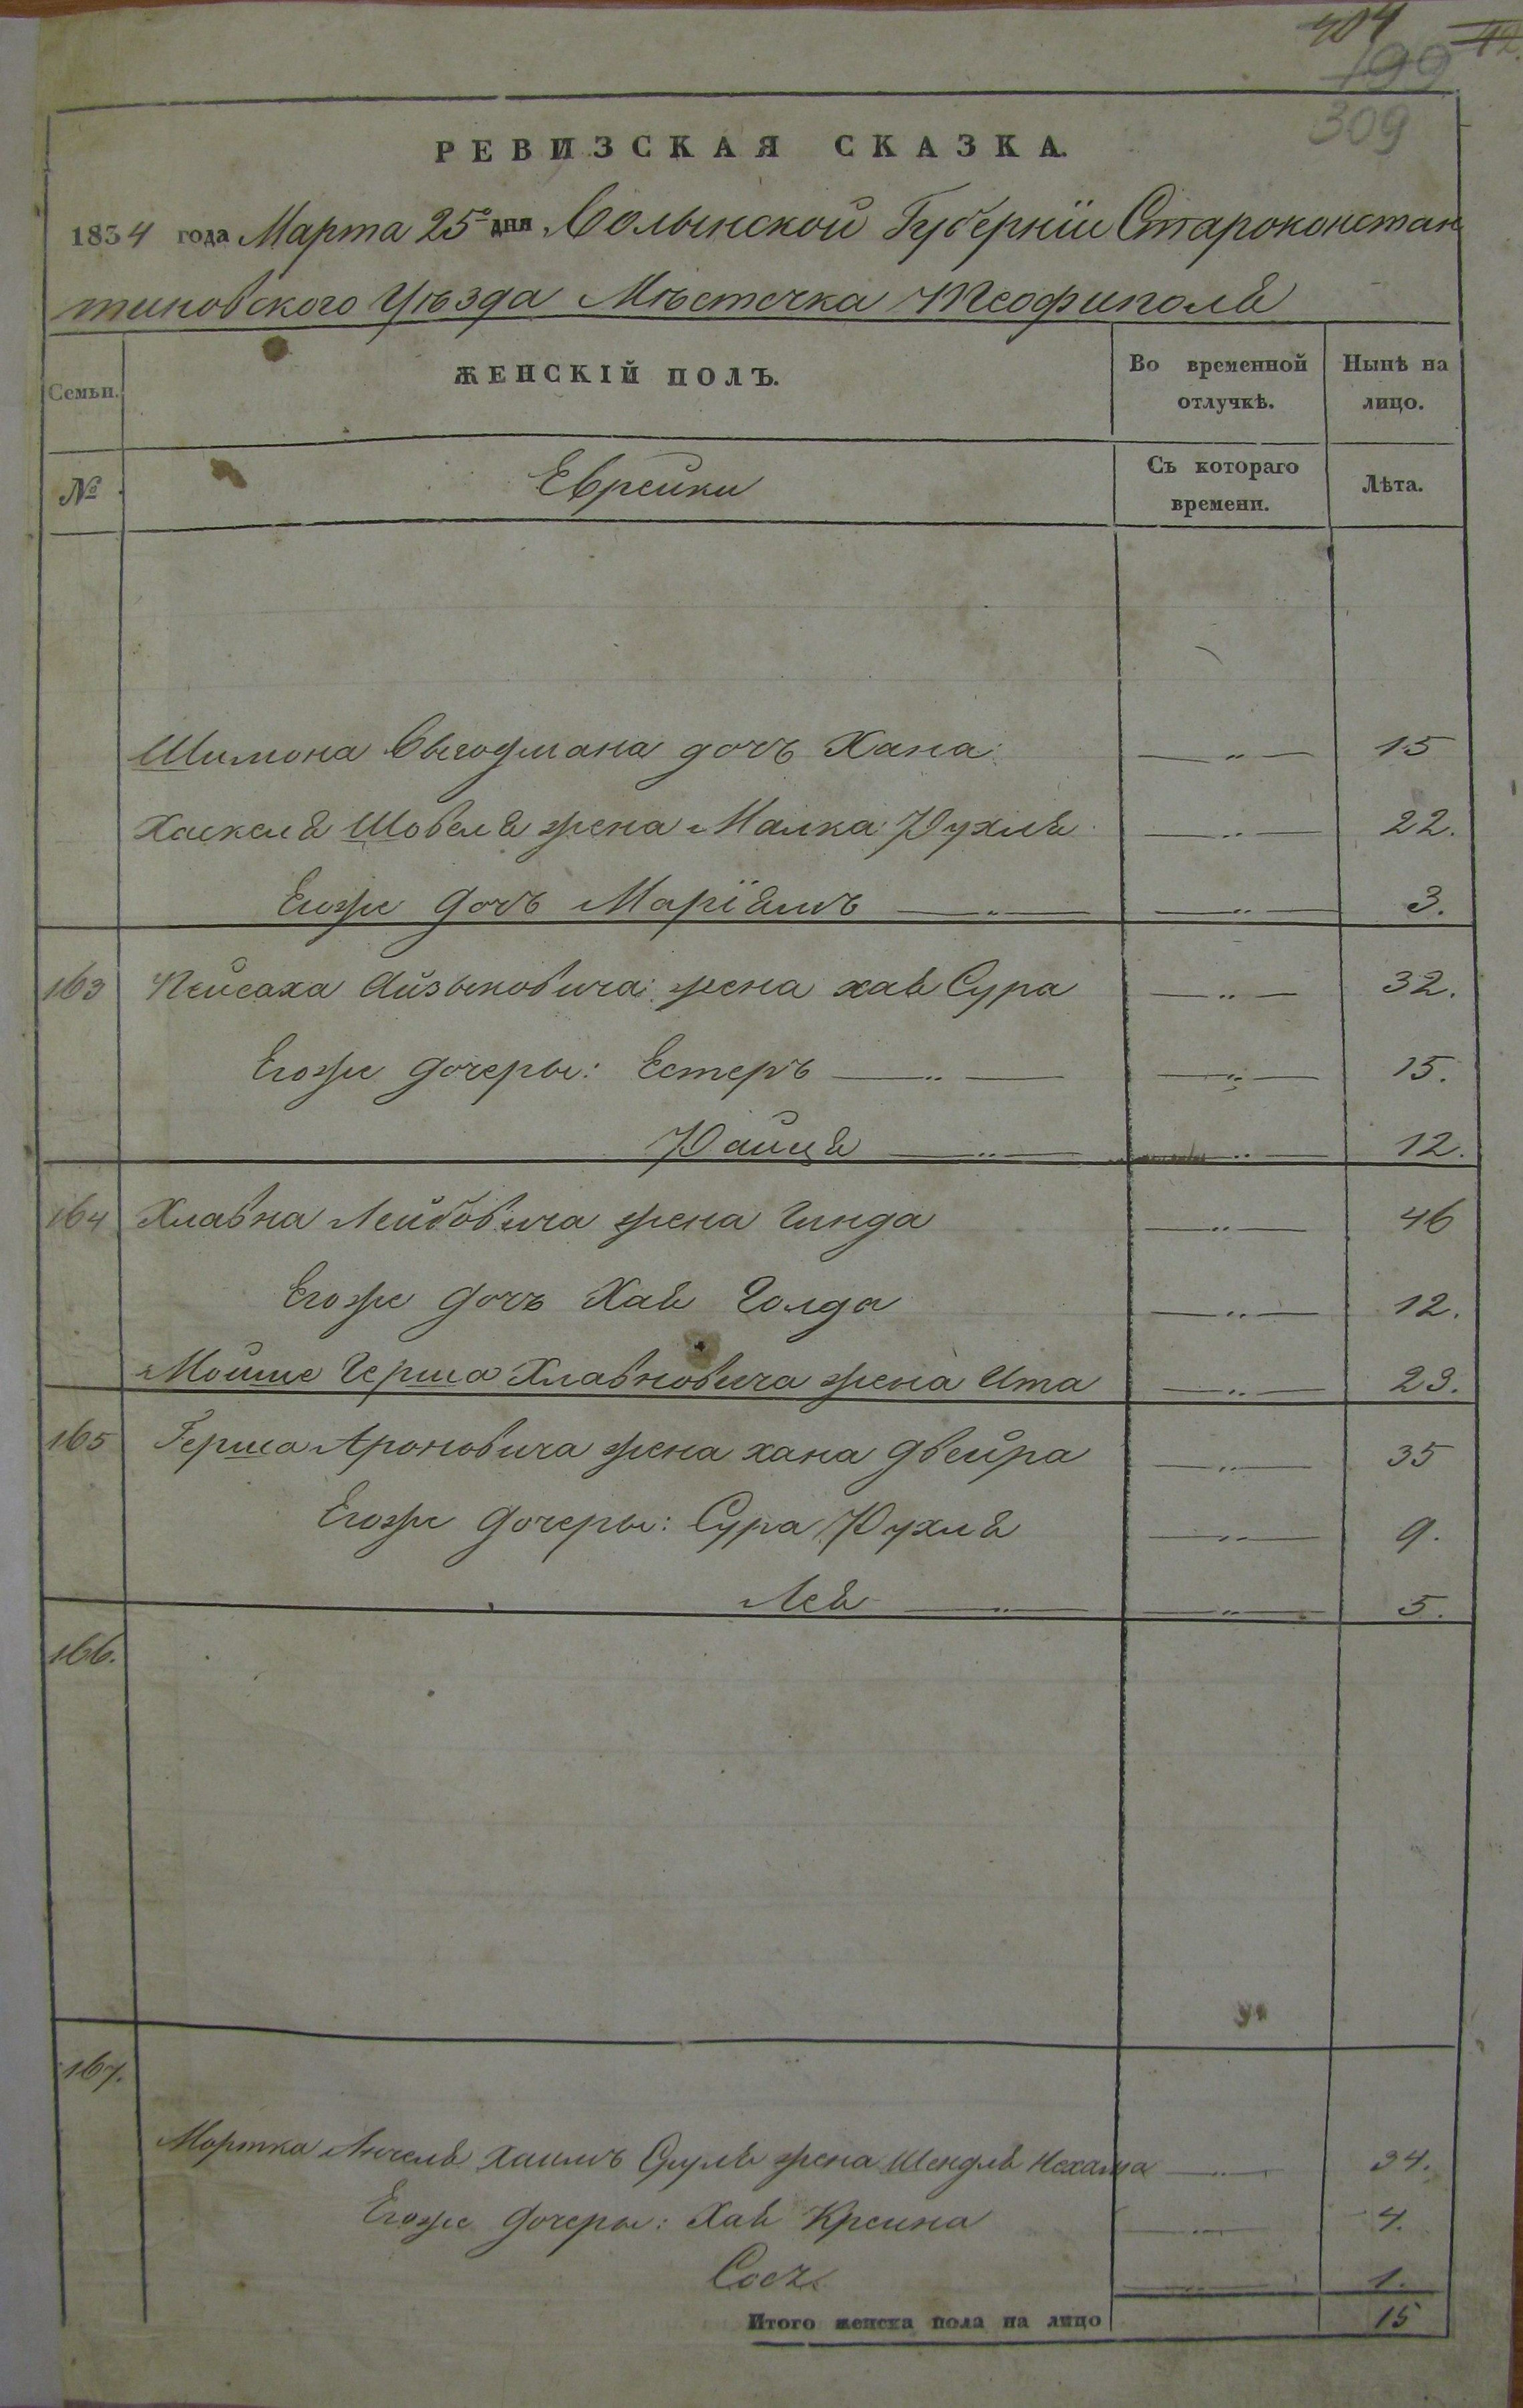 404
42.
199
309
РЕВИЗСКАЯ СКАЗКА.
1834 года Марта 25го дня Волынской Губерніи Староконстан
тиновского Уѣзда Мѣстечка Теофиполя
Семьи. ЖЕНСКІЙ ПОЛЪ. Во временной отлучкѣ. Нынѣ на лицо.
№ Еврейки Съ котораго времени. Лѣта.
Шимона Выгодмана дочь Хана: — „ — 15
Хаскеля Шовеля жена Малка Рухля — „ — 22.
Егоже дочь Маріямъ — „ — — „ — 3.
163 Пейсаха Айзыковича: жена хая Сура — „ — 32.
Егоже дочеры: Естеръ — „ — — „ — 15.
Райця — „ — — „ — 12.
164 Хлавна Лейбовича жена Гинда — „ — 46
Егоже дочь Хая Голда — „ — 12.
Мойше Герша Хлавновича жена Ита — „ — 23.
165 Герша Ароновича жена хана двейра — „ — 35
Егоже дочеры: Сура Рухля — „ — 9.
Лея — „ — — „ — 5.
166.
167.
Мортка хаимъ Сруля жена Шендля Нехама — „ — 34.
Егоже дочеры: Хая Крейна — „ — 4.
— „ — 1.
Итого женска пола на лицо 15